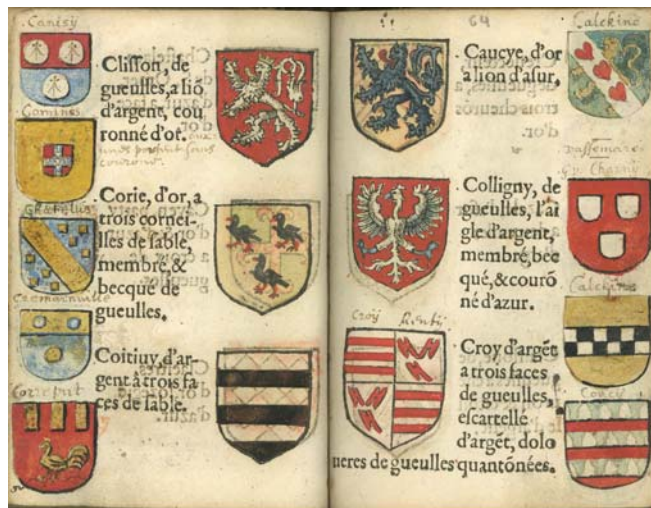 Canisy
Comines
Clisson, de
gueulles, a lio
d'argent, cou
ronné d'or.
Corie, d'or, a
trois corneil-
lses de sable,
membré, &
becque de
gueulles.
Coitiuy, d'ar-
gent à trois fa
ces de sable.
64
Calekine
Caucye, d'or
a lion d'asur,
Colligny, de
gueulles, l'ai
gle d'argent,
membré, bec
qué, & courō
né d'azur.
Calekine
Croy
Renty
Croy d'argēt
a trois faces
de gueulles,
escartelle
d'argēt, dolo
ueres de gueulles quantōnées.
Coucy